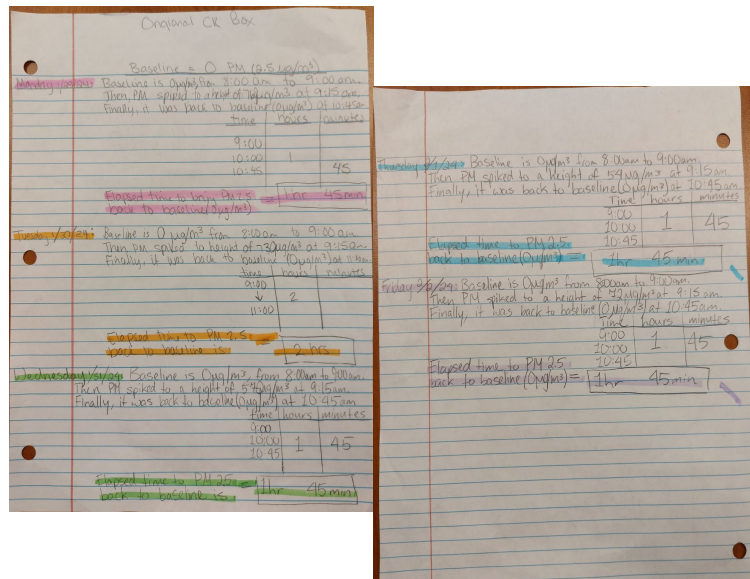 Origianal CR Box
Baseline = 0 PM (2.5 µg/m³)
Baseline is 0µg/m³ from 8:00am to 9:00am.
Then, PM spiked to a height of µg/m³ at 9:15am.
Finally, it was back to baseline (0µg/m³) at 10:45am
time hours minutes
9:00
10:00 1
10:45 45
Elapsed time to bring PM 2.5 = 1hr 45min
back to baseline (0µg/m³)
Tuesday 1/30/24: Baseline is 0 µg/m³ from 8:00am to 9:00am
Then PM spiked to height of 73µg/m³ at 9:15am
Finally, it was back to baseline (0µg/m³) at
time hours minutes
9:00
↓ 2
11:00
Elapsed time to PM 2.5 =
back to baseline is 2 hrs
Wednesday 1/31/24: Baseline is 0µg/m³, from 8:00am to 9:00am.
Then PM spiked to a height of µg/m³ at 9:15am.
Finally, it was back to baseline (0µg/m³) at 10:45am
time hours minutes
9:00
10:00 1 45
10:45
Elapsed time to PM 2.5 = 1hr 45 min
back to baseline is
Thursday 2/1/24: Baseline is 0µg/m³ from 8:00am to 9:00am.
Then PM spiked to a height of 54µg/m³ at 9:15am
Finally, it was back to baseline (0µg/m³) at 10:45am
Time hours minutes
9:00
10:00 1 45
10:45
Elapsed time to PM 2.5
back to baseline (0µg/m³) = 1hr 45 min
Friday 2/2/24: Baseline is 0µg/m³ from 8:00am to 9:00am.
Then, PM spiked to a height of 72µg/m³ at 9:15am.
Finally, it was back to baseline (0µg/m³) at 10:45am.
Time hours minutes
9:00
10:00 1 45
10:45
Elapsed time to PM 2.5
back to baseline (0µg/m³) = 1hr 45min